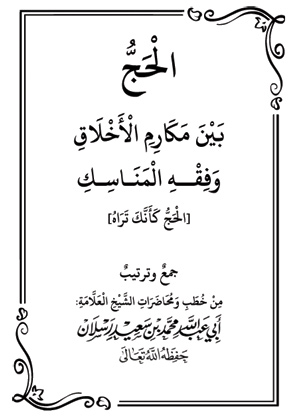 الْحَجُّ
بَيْنَ مَكَارِمِ الْأَخْلَاقِ
وَفِقْهِ الْمَنَاسِكِ
[الْحَجُّ كَأَنَّكَ تَرَاهُ]
جمعٌ وترتيبٌ
مِنْ خُطَبِ وَمُحَاضَرَاتِ الشَّيْخِ الْعَلَّامَةِ:
أَبِي عَبْدِ اللَّهِ مُحَمَّدِ بْنِ سَعِيدِ رَسْلَان
حَفِظَهُ اللَّهُ تَعَالَى